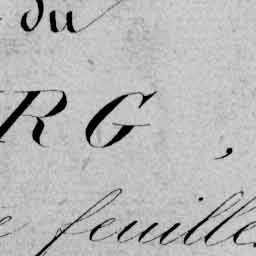 du
RG,
feuille